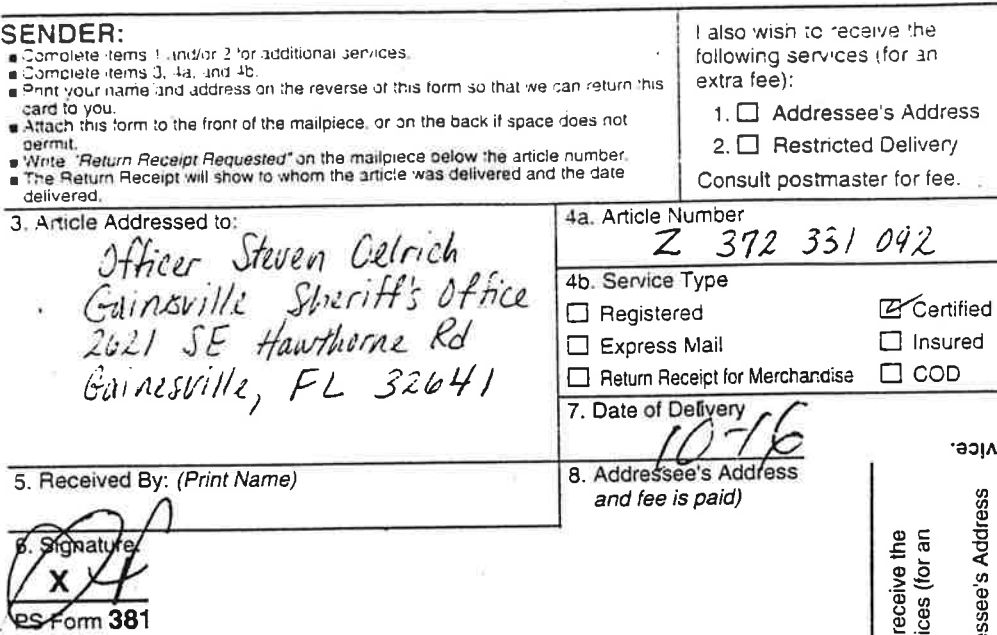 SENDER:
■ Complete items 1 and/or 2 for additional services.
■ Complete items 3, 4a, and 4b.
■ Print your name and address on the reverse of this form so that we can return this
card to you.
■ Attach this form to the front of the mailpiece, or on the back if space does not
permit.
■ Write "Return Receipt Requested" on the mailpiece below the article number.
■ The Return Receipt will show to whom the article was delivered and the date
delivered.
I also wish to receive the
following services (for an
extra fee):
1. ☐ Addressee's Address
2. ☐ Restricted Delivery
Consult postmaster for fee.
3. Article Addressed to:
Officer Steven Oelrich
Gainsville Sheriff's Office
2621 SE Hawthorne Rd
Gainesville, FL 32641
4a. Article Number
Z 372 331 092
4b. Service Type
☐ Registered
☑ Certified
☐ Express Mail
☐ Insured
☐ Return Receipt for Merchandise
☐ COD
7. Date of Delivery
10-16
5. Received By: (Print Name)
8. Addressee's Address
and fee is paid)
6. Signature:
X
PS Form 381
vice.
receive the
ices (for an
ssee's Address